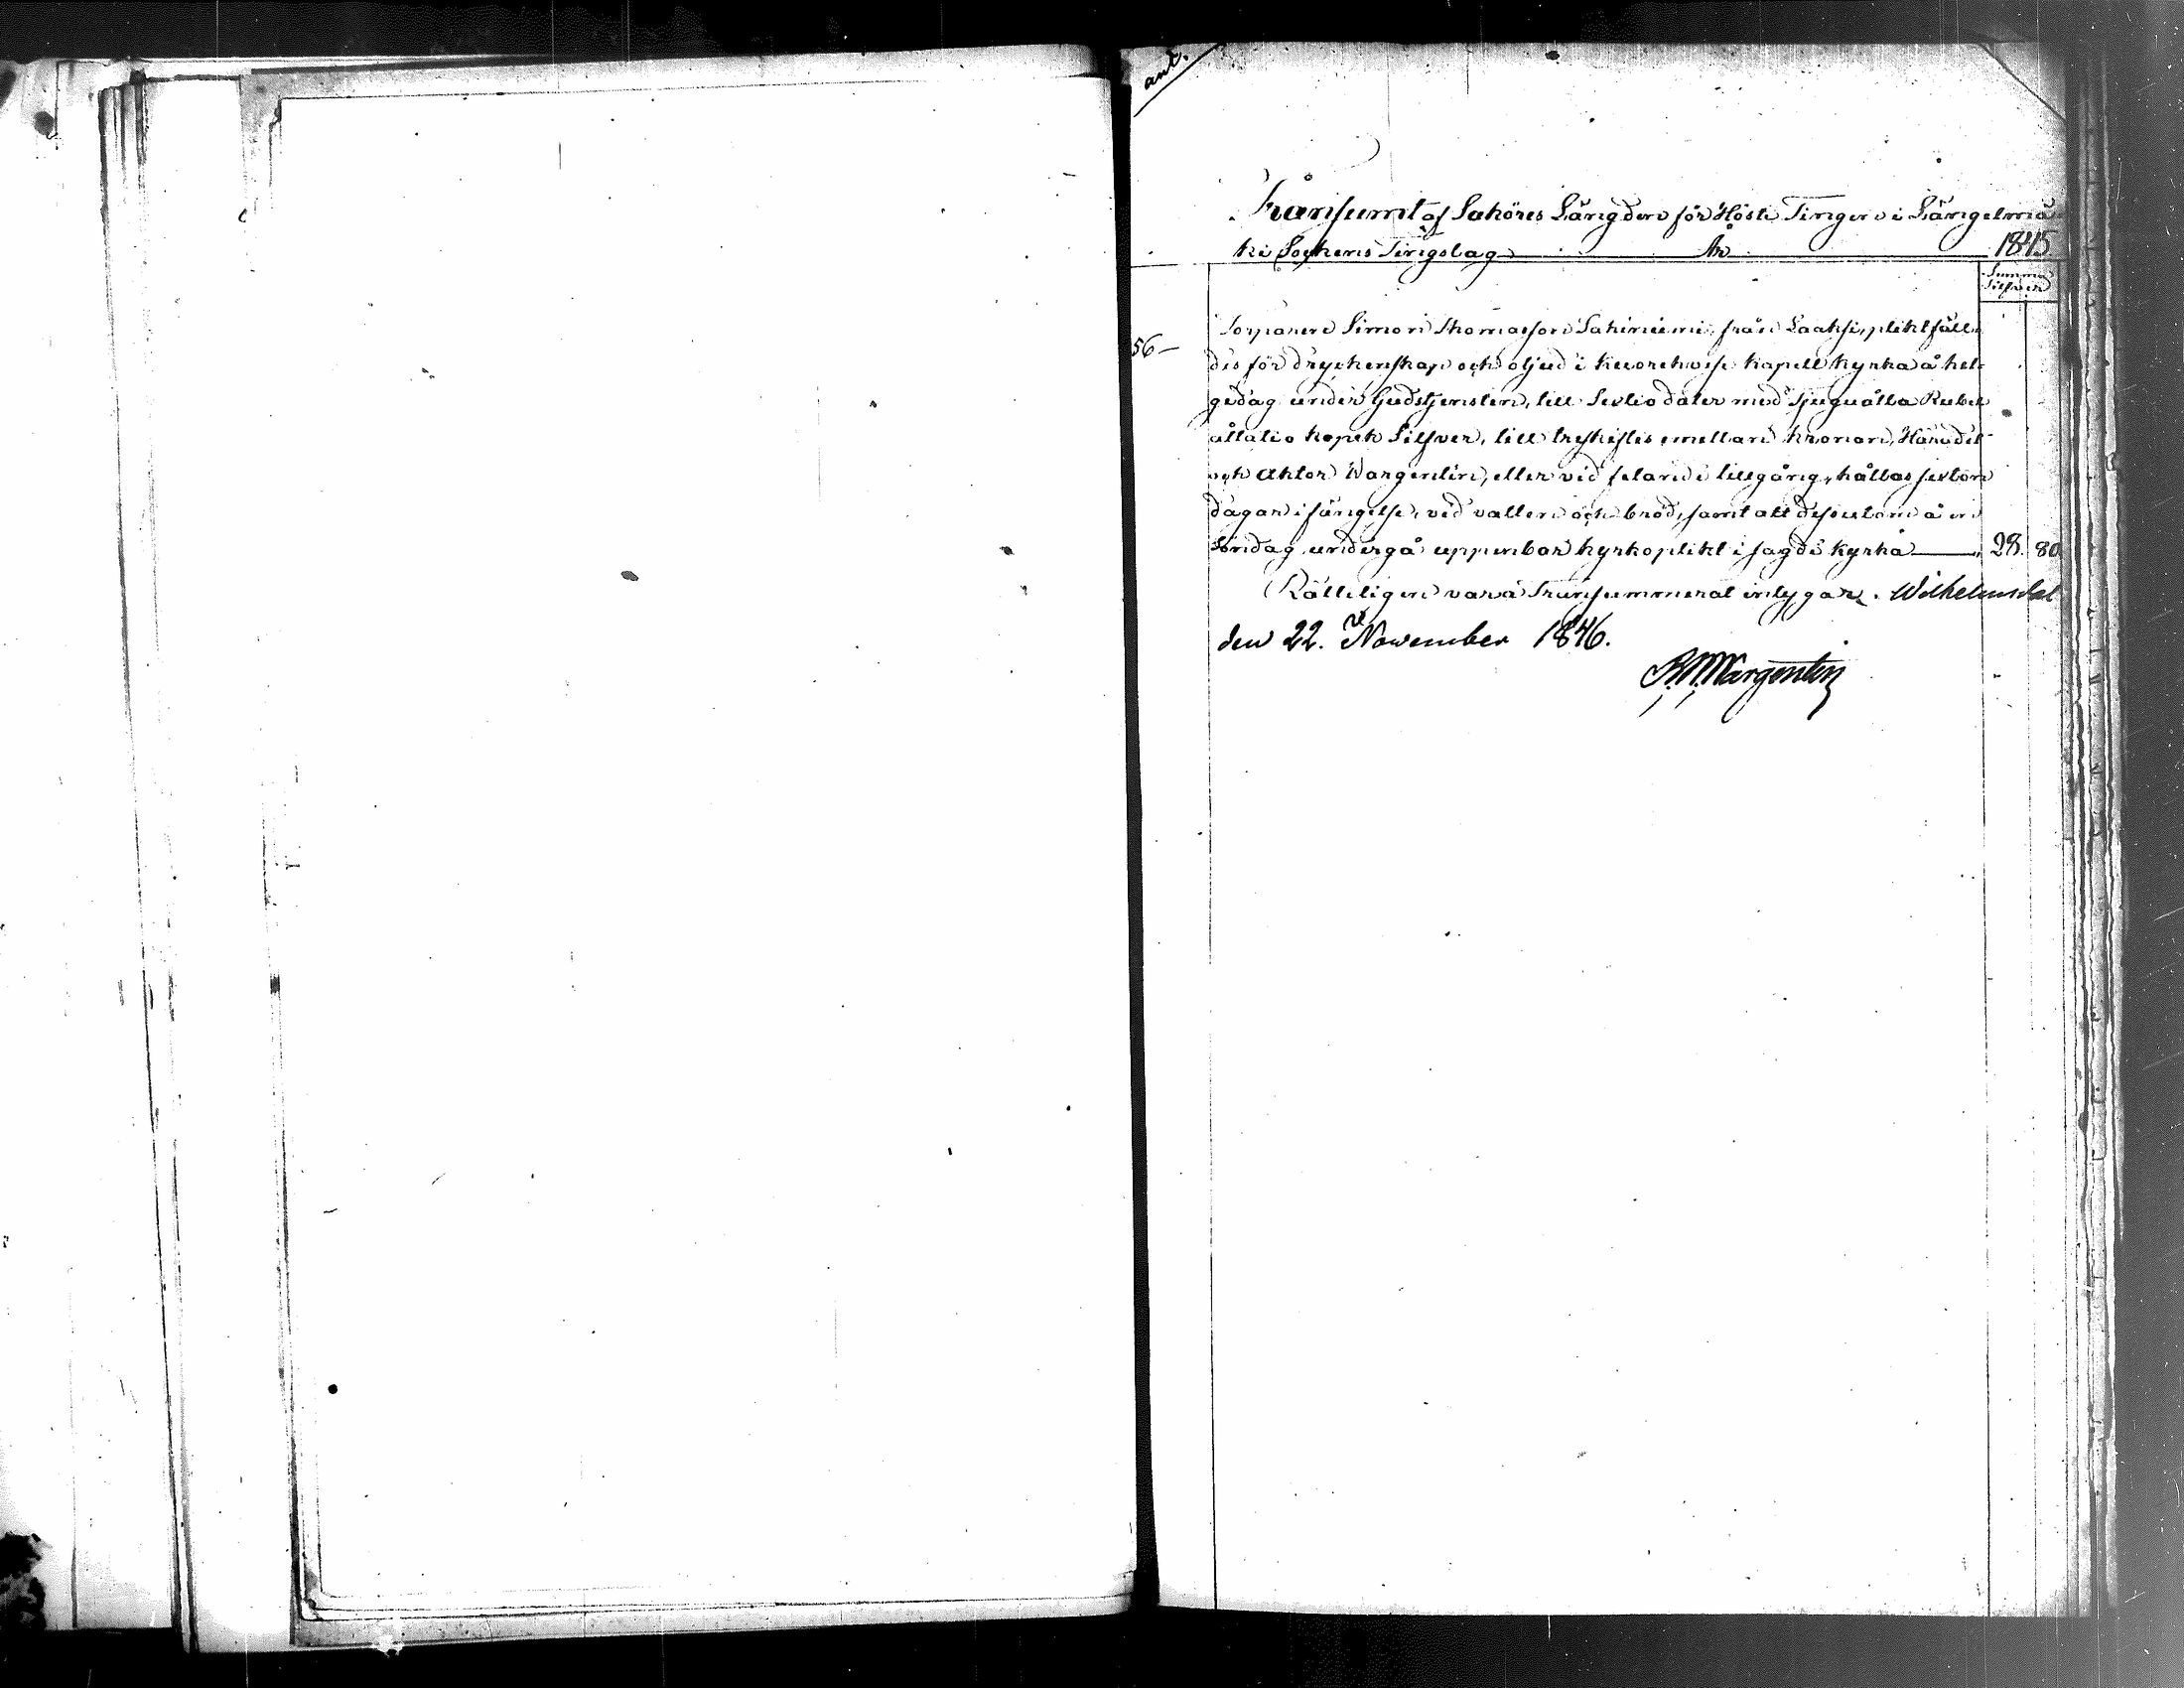 ant.
Transumt af Saköres Längden för Höste Tingen i Längelmä
ki Sockens Tingslag År 1845
Summa
Silfver
Torparen Simon Thomasson Sahiniemi, från Laaksi, pliktfäll-
56 —
des för dryckenskap och oljud i Kuorehvesi Kapell kyrka å hel-
gedag under Gudstjensten, till Sextio daler med Tjuguåtta Rubel
åttatio kopek Silfver, till treskiftes emellan Kronan, Häradet
och Aktor Wargentin, eller vid felande tillgång, hållas sexton
dagar i fängelse vid vatten och bröd, samt att dessutom å en
Söndag undergå uppenbar kyrkoplikt i sagde kyrka — 28. 80.
Rätteligen vara Transummerat intygar. Wilhelmsdal
den 22. November 1846.
Wargentin